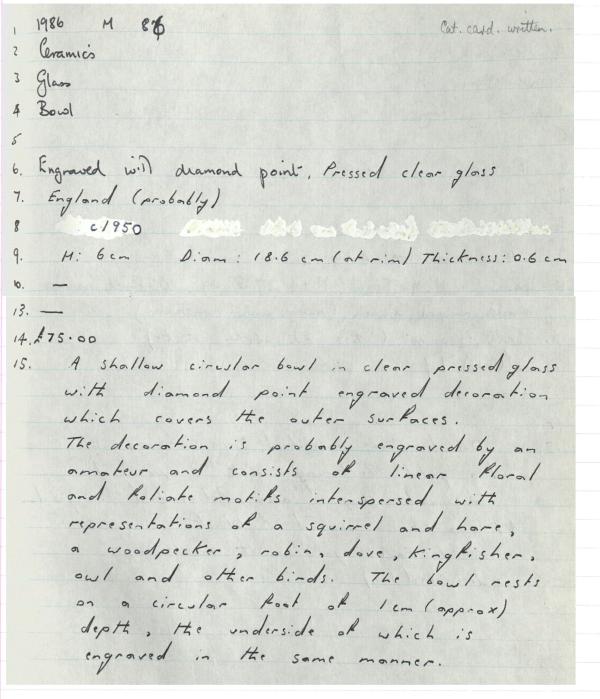 1 1986 M 86
Cat. card. written.
2 Ceramics
3 Glass
4 Bowl
5
6. Engraved with diamond point. Pressed clear glass
7. England (probably)
8 c1950
9. H: 6cm Diam: 18.6 cm (at rim) Thickness: 0.6 cm
10. —
13. —
14. £75.00
15. A shallow circular bowl in clear pressed glass
with diamond point engraved decoration
which covers the outer surfaces.
The decoration is probably engraved by an
amateur and consists of linear floral
and foliate motifs interspersed with
representations of a squirrel and hare,
a woodpecker, robin, dove, kingfisher,
owl and other birds. The bowl rests
on a circular foot of 1cm (approx)
depth, the underside of which is
engraved in the same manner.